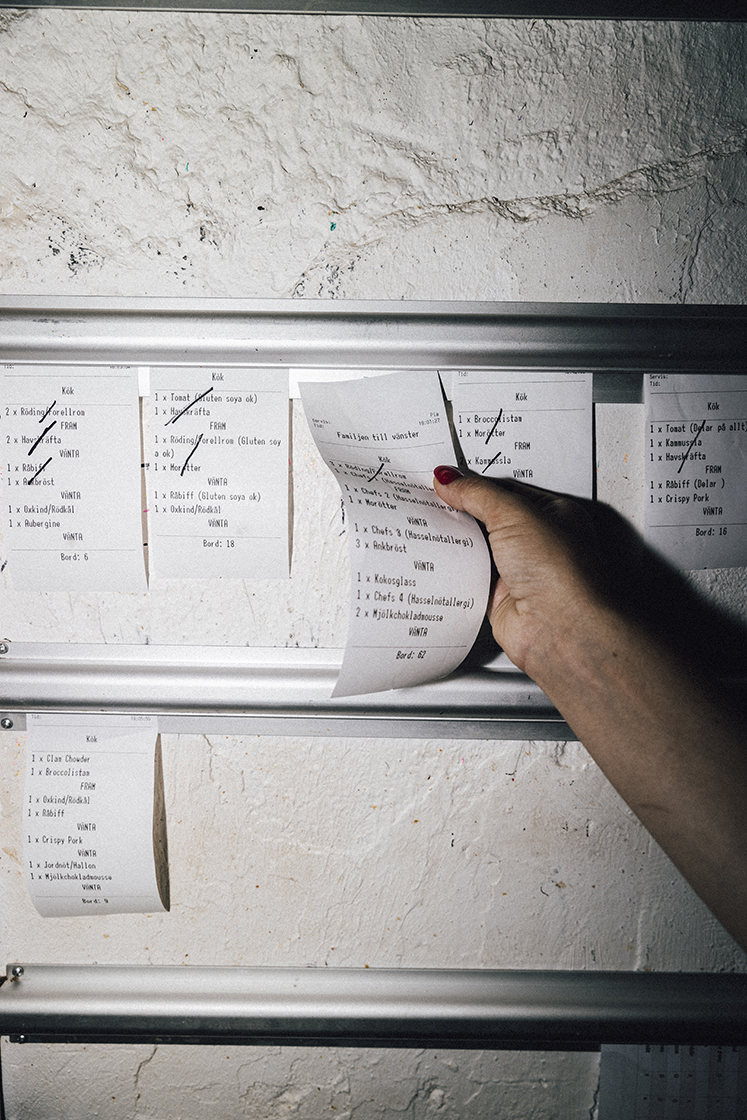 Kök
2 x Röding/Forellrom
FRAM
2 x Havskräfta
VÄNTA
1 x Råbiff
1 x Ankbröst
VÄNTA
1 x Oxkind/Rödkål
1 x Aubergine
VÄNTA
Bord: 6
Kök
1 x Tomat (Gluten soya ok)
1 x Havskräfta
FRAM
1 x Röding/Forellrom (Gluten soy
a ok)
1 x Morötter
VÄNTA
1 x Råbiff (Gluten soya ok)
1 x Oxkind/Rödkål
VÄNTA
Bord: 18
Servis:
Tid:
Familjen till vänster
Kök
1 x Röding/Forellrom
FRAM
1 x Chefs 2 (Hasselnötallergi)
1 x Morötter
VÄNTA
1 x Chefs 3 (Hasselnötallergi)
3 x Ankbröst
VÄNTA
1 x Kokosglass
1 x Chefs 4 (Hasselnötallergi)
2 x Mjölkchokladmousse
VÄNTA
Bord: 62
Kök
1 x Broccolistam
1 x Morötter
FRAM
1 x Kammussla
VÄNTA
Servis:
Tid:
Kök
1 x Tomat (Delar på allt)
1 x Kammussla
1 x Havskräfta
FRAM
1 x Råbiff (Delar )
1 x Crispy Pork
VÄNTA
Bord: 16
Tid:
Kök
1 x Clam Chowder
1 x Broccolistam
FRAM
1 x Oxkind/Rödkål
1 x Råbiff
VÄNTA
1 x Crispy Pork
VÄNTA
1 x Jordnöt/Hallon
1 x Mjölkchokladmousse
VÄNTA
Bord: 9